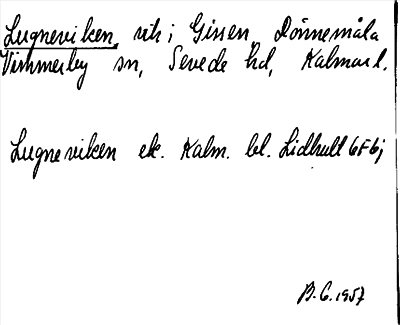 Lugneviken, vik i Gissen, Dönnemåla
Vimmerby sn, Sevede hd, Kalmar l.
Lugneviken ek. Kalm. bl. Lidhult 6F6j
B.G. 1957